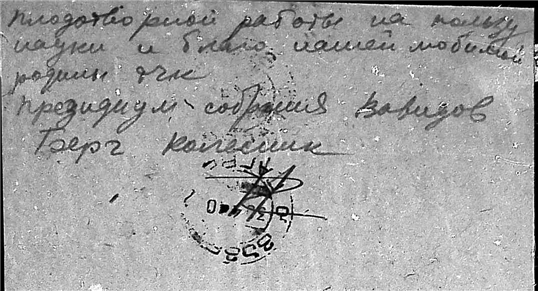 плодотворной работы на пользу
науки и благо нашей любимой
родины тчк
президиум собрания Вавилов
Берг Колесник